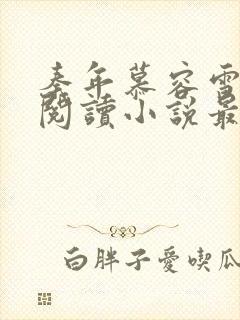 秦年慕容雪
閱讀小說最
白胖子愛喫瓜